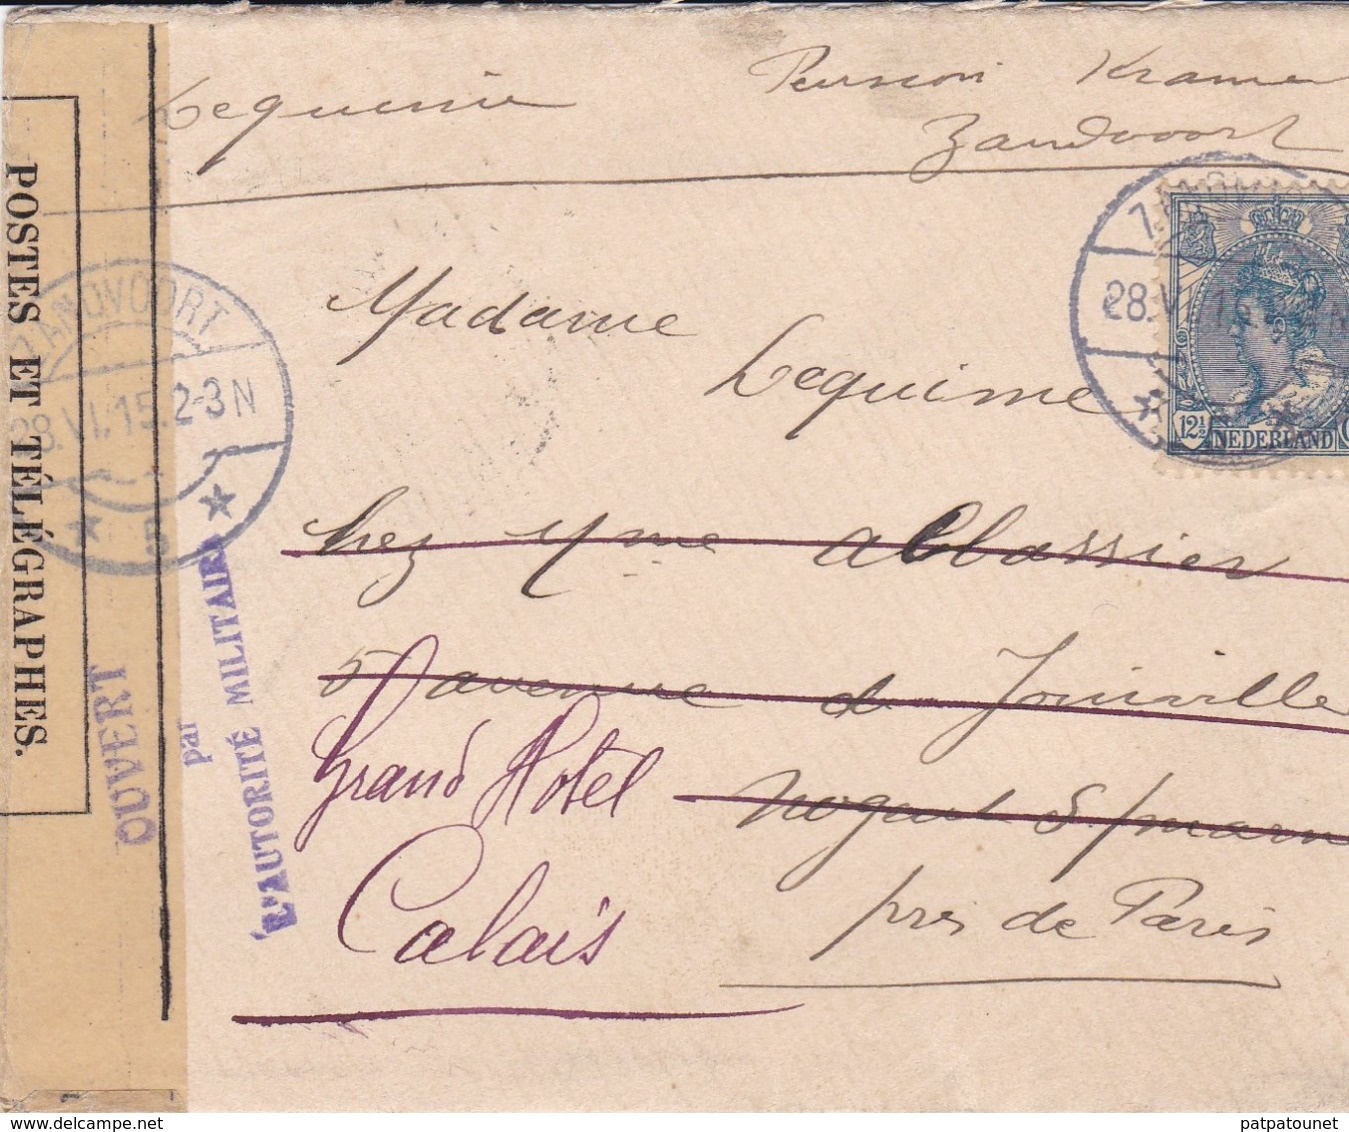 Lequime Pension Kramer
Zandvoort
ZANDVOORT
28.VI.15.2-3N
5
28.VI.15
12½
NEDERLAND
POSTES ET TÉLÉGRAPHES.
OUVERT
par
L'AUTORITÉ MILITAIRE
Madame
Lequime
chez Mme
5 avenue de Joinville
Nogent S/marn
près de Paris
Grand Hotel
Calais
patpatounet
delcampe.net